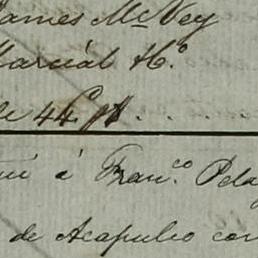 James McVey
Marcial Ho.
de 44
á Franco. Pela
de Acapulco con